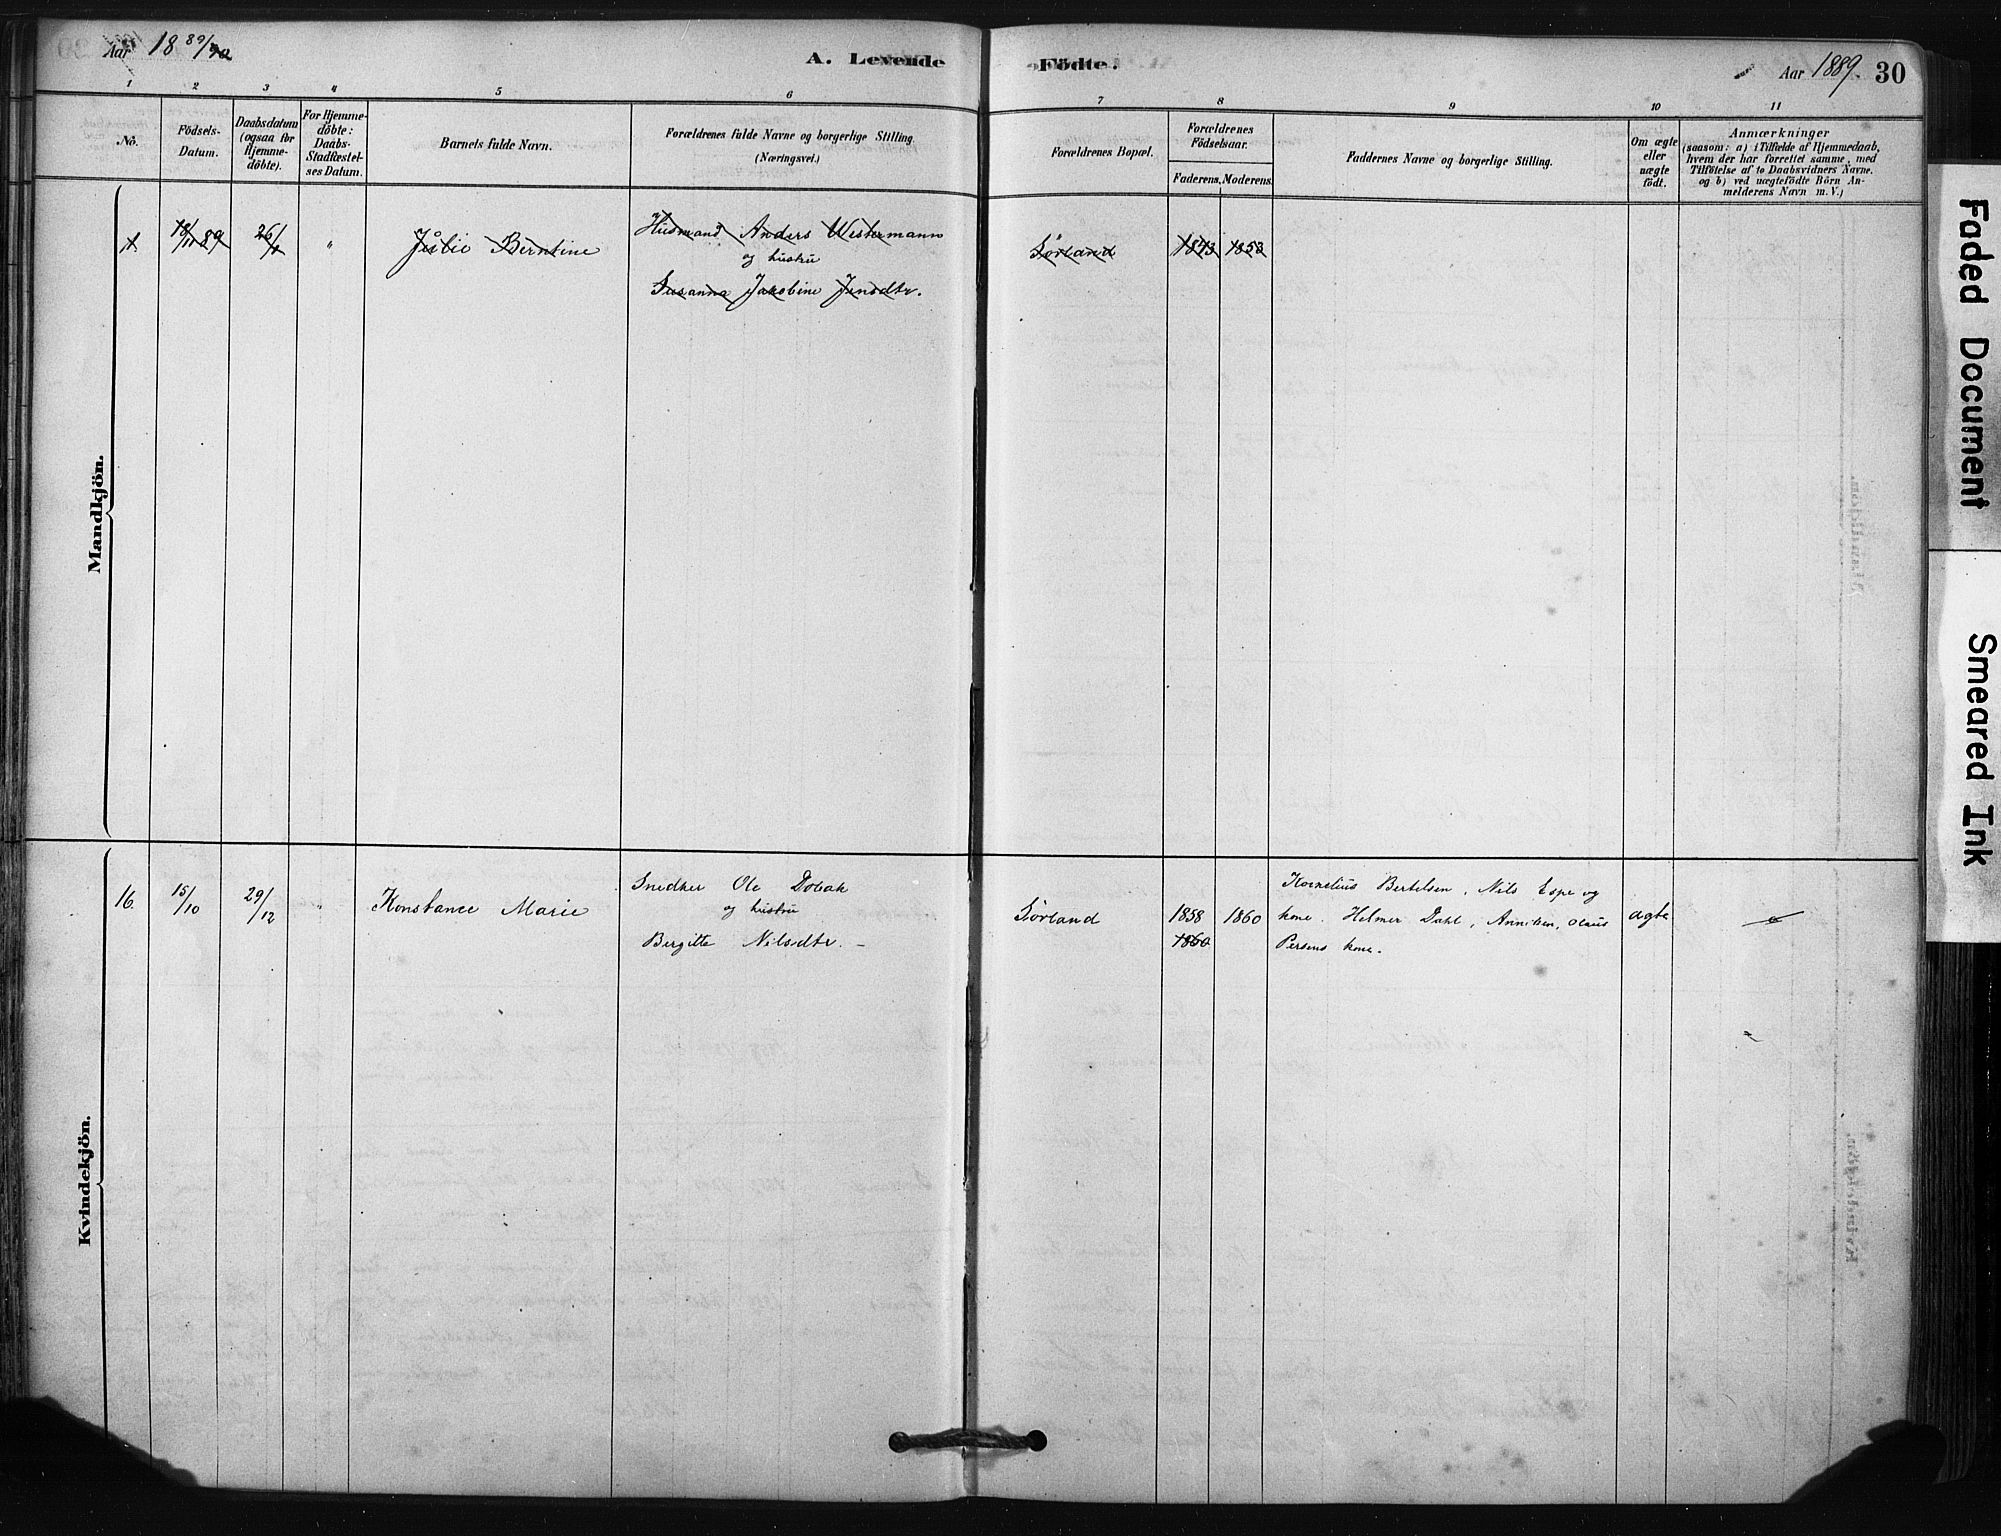 Aar 1889/90
A. Levende
Födte.
Aar 1889.
30
1 2 3 4 5 6 7 8 9 10 11
No.
Födsels-
Datum.
Daabsdatum
(ogsaa for
Hjemme-
döbte).
For Hjemme-
döbte:
Daabs-
Stadfæstel-
ses Datum.
Barnets fulde Navn.
Forældrenes fulde Navne og borgerlige Stilling.
(Næringsvei.)
Forældrenes Bopæl.
Forældrenes
Födselsaar.
Faderens. Moderens.
Faddernes Navne og borgerlige Stilling.
Om ægte
eller
uægte
födt.
Anmærkninger
(saasom: a) i Tilfælde af Hjemmedaab,
hvem der har forrettet samme, med
Tilföielse af to Daabsvidners Navne.
og b) ved uægtefödte Börn An-
melderens Navn m. V.)
Mandkjön.
1. 18/11 89 26/1 " Julie Berntine
Husmand Anders Westermann
og hustru
Susanna Jakobine Jensdtr.
Sørland 1843 1853
Kvindekjön.
16. 15/10 29/12 " Konstance Marie
Snedker Ole Dobak
og hustru
Bergitte Nilsdtr. -
Sørland
1858 1860
1860
Kornelius Bertelsen, Nils Espe og
kone. Helmer Dahl, Olaus
Persens kone.
ægte
Faded Document
Smeared Ink